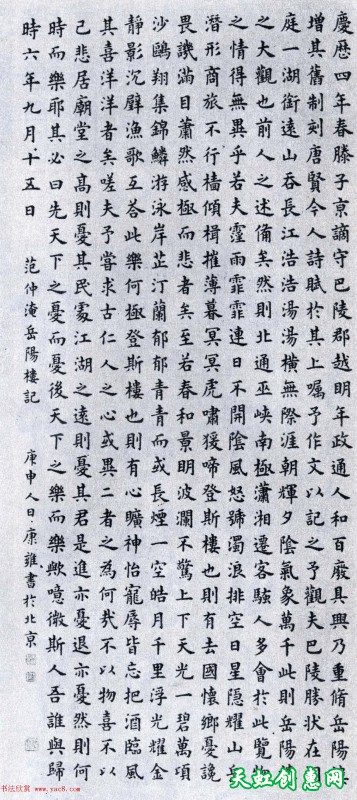 慶歷四年春滕子京謫守巴陵郡越明年政通人和百廢具興乃重脩岳陽
增其舊制刻唐賢今人詩賦於其上囑予作文以記之予觀夫巴陵勝狀在
庭一湖銜遠山吞長江浩浩湯湯橫無際涯朝輝夕陰氣象萬千此則岳陽
之大觀也前人之述備矣然則北通巫峽南極瀟湘遷客騷人多會於此覽物
之情得無異乎若夫霪雨霏霏連日不開陰風怒號濁浪排空日星隱耀山岳
潛形商旅不行檣傾楫摧薄暮冥冥虎嘯猿啼登斯樓也則有去國懷鄉憂讒
畏譏滿目蕭然感極而悲者矣至若春和景明波瀾不驚上下天光一碧萬頃
沙鷗翔集錦鱗游泳岸芷汀蘭郁郁青青而或長煙一空皓月千里浮光耀金
靜影沉璧漁歌互答此樂何極登斯樓也則有心曠神怡寵辱皆忘把酒臨風
其喜洋洋者矣嗟夫予嘗求古仁人之心或異二者之為何哉不以物喜不以
己悲居廟堂之高則憂其民處江湖之遠則憂其君是進亦憂退亦憂然則何
時而樂耶其必曰先天下之憂而憂後天下之樂而樂歟噫微斯人吾誰與歸
時六年九月十五日 范仲淹岳陽樓記 庚申人日康雍書於北京
书法欣赏 www.yac8.com
天虹创意网